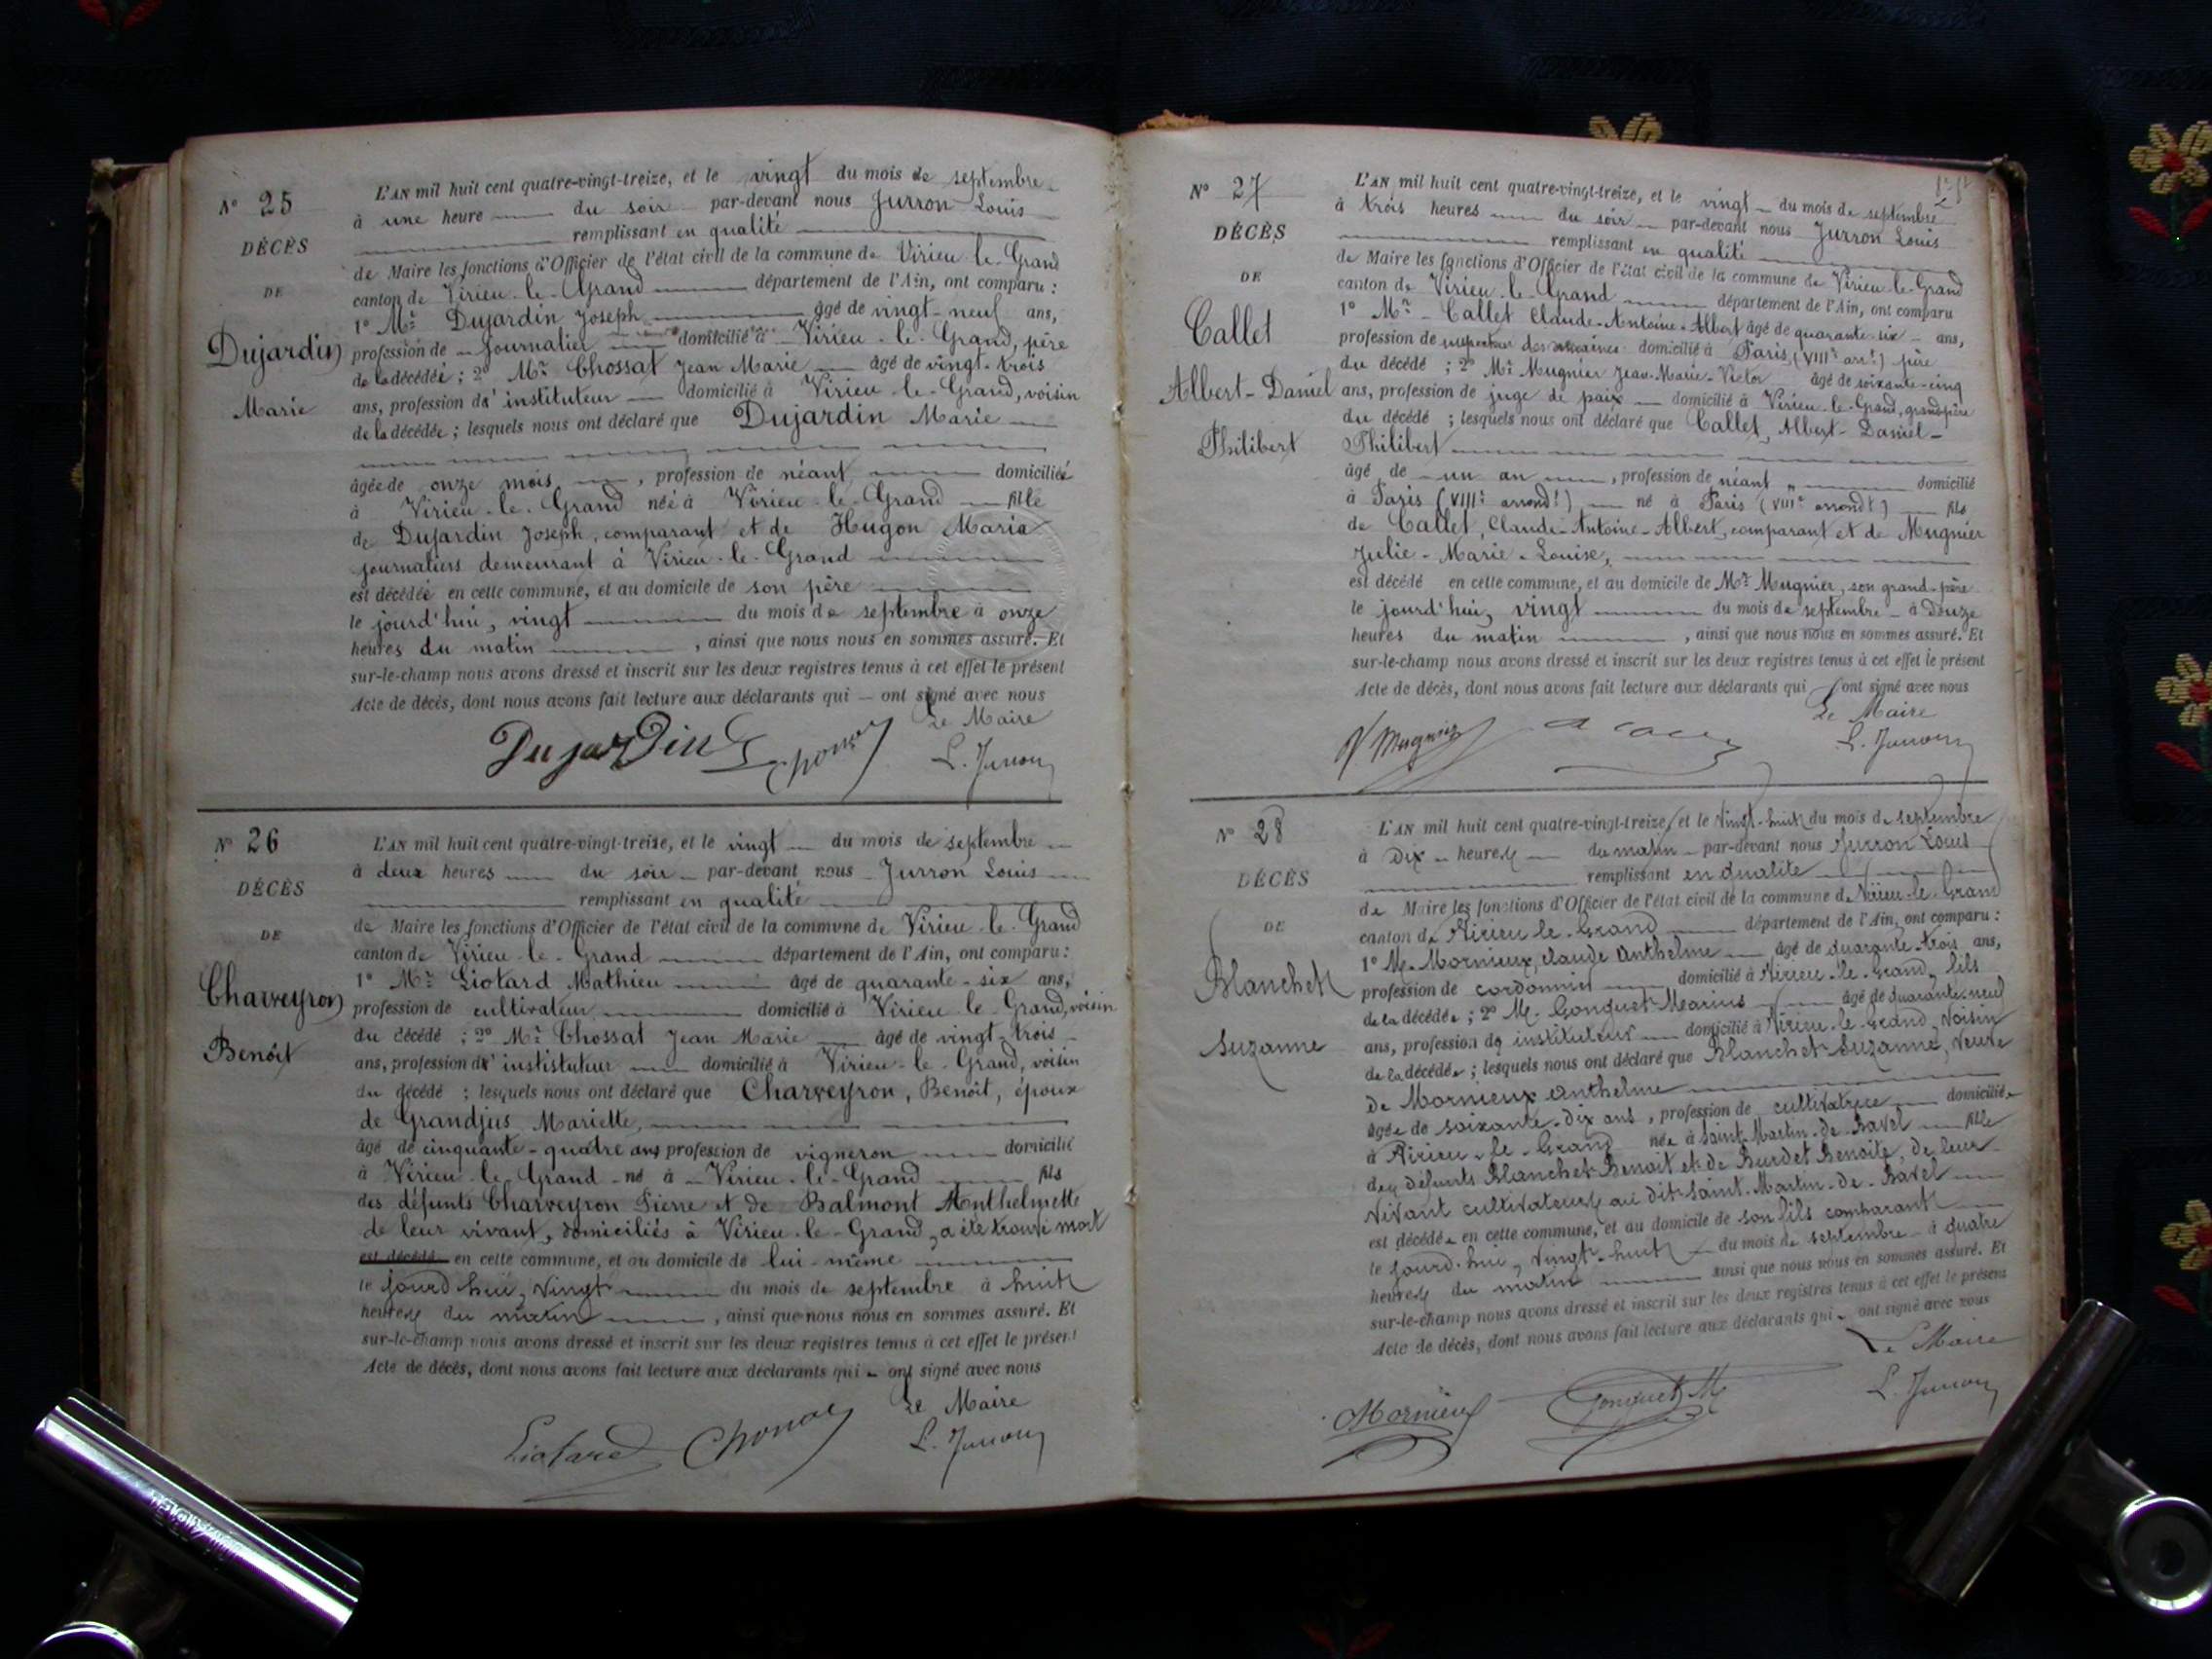 N° 25
DÉCÈS
DE
Dujardin
Marie
L'AN mil huit cent quatre-vingt-treize, et le vingt du mois de septembre
à une heure du soir par-devant nous Jurron Louis
remplissant en qualité
de Maire les fonctions d'Officier de l'état civil de la commune de Virieu-le-Grand
canton de Virieu-le-Grand département de l'Ain, ont comparu :
1° Mr Dujardin Joseph âgé de vingt-neuf ans,
profession de journalier domicilié à Virieu-le-Grand, père
de la décédée ; 2° Mr Chossat Jean Marie âgé de vingt-trois
ans, profession d'instituteur domicilié à Virieu-le-Grand, voisin
de la décédée ; lesquels nous ont déclaré que Dujardin Marie
âgée de onze mois, profession de néant domiciliée
à Virieu-le-Grand née à Virieu-le-Grand fille
de Dujardin Joseph, comparant et de Hugon Maria
journaliers demeurant à Virieu-le-Grand
est décédée en cette commune, et au domicile de son père
le jourd'hui, vingt du mois de septembre à onze
heures du matin, ainsi que nous nous en sommes assuré. Et
sur-le-champ nous avons dressé et inscrit sur les deux registres tenus à cet effet le présent
Acte de décès, dont nous avons fait lecture aux déclarants qui ont signé avec nous
Le Maire
Dujardin Chossat L. Jurron
N° 26
DÉCÈS
DE
Charveyron
Benoît
L'AN mil huit cent quatre-vingt-treize, et le vingt du mois de septembre
à deux heures du soir par-devant nous Jurron Louis
remplissant en qualité
de Maire les fonctions d'Officier de l'état civil de la commune de Virieu-le-Grand
canton de Virieu-le-Grand département de l'Ain, ont comparu :
1° Mr Liotard Mathieu âgé de quarante-six ans,
profession de cultivateur domicilié à Virieu-le-Grand, voisin
du décédé ; 2° Mr Chossat Jean Marie âgé de vingt-trois
ans, profession d'institituteur domicilié à Virieu-le-Grand, voisin
du décédé ; lesquels nous ont déclaré que Charveyron, Benoît, époux
de Grandjus Mariette,
âgé de cinquante-quatre ans profession de vigneron domicilié
à Virieu-le-Grand né à Virieu-le-Grand fils
des défunts Charveyron Pierre et de Balmont Anthelmette
de leur vivant, domiciliés à Virieu-le-Grand, a été trouvé mort
est décédé en cette commune, et au domicile de lui-même
le jourd'hui, vingt du mois de septembre à huit
heures du matin, ainsi que nous nous en sommes assuré. Et
sur-le-champ nous avons dressé et inscrit sur les deux registres tenus à cet effet le présent
Acte de décès, dont nous avons fait lecture aux déclarants qui ont signé avec nous
Le Maire
Liotard Chossat L. Jurron
N° 27
DÉCÈS
DE
Callet
Albert-Daniel
Philibert
L'AN mil huit cent quatre-vingt-treize, et le vingt du mois de septembre
à trois heures du soir par-devant nous Jurron Louis
remplissant en qualité
de Maire les fonctions d'Officier de l'état civil de la commune de Virieu-le-Grand
canton de Virieu-le-Grand département de l'Ain, ont comparu
1° Mr Callet Claude-Antoine-Albert âgé de quarante-six ans,
profession de inspecteur des domicilié à Paris, (VIIIe arrt) père
du décédé ; 2° Mr Mugnier Jean-Marie-Victor âgé de soixante-cinq
ans, profession de juge de paix domicilié à Virieu-le-Grand, grand-père
du décédé ; lesquels nous ont déclaré que Callet, Albert-Daniel-
Philibert
âgé de un an, profession de néant domicilié
à Paris (VIIIe arrondt) né à Paris (VIIIe arrondt) fils
de Callet, Claude-Antoine-Albert, comparant et de Mugnier
Julie-Marie-Louise,
est décédé en cette commune, et au domicile de Mr Mugnier, son grand-père
le jourd'hui, vingt du mois de septembre à douze
heures du matin, ainsi que nous nous en sommes assuré. Et
sur-le-champ nous avons dressé et inscrit sur les deux registres tenus à cet effet le présent
Acte de décès, dont nous avons fait lecture aux déclarants qui ont signé avec nous
Le Maire
V Mugnier L. Jurron
N° 28
DÉCÈS
DE
Blanchet
Suzanne
L'AN mil huit cent quatre-vingt-treize, et le vingt-huit du mois de septembre
à dix heures du matin par-devant nous Jurron Louis
remplissant en qualité
de Maire les fonctions d'Officier de l'état civil de la commune de Virieu-le-Grand
canton de Virieu-le-Grand département de l'Ain, ont comparu :
1° M. Mornieux, claude Anthelme âgé de quarante-trois ans,
profession de cordonnier domicilié à Virieu-le-Grand, fils
de la décédée ; 2° M. Gonguet Marius âgé de quarante-neuf
ans, profession de instituteur domicilié à Virieu-le-Grand, voisin
de la décédée ; lesquels nous ont déclaré que Blanchet Suzanne, veuve
de Mornieux Anthelme
âgée de soixante-dix ans, profession de cultivatrice domiciliée
à Virieu-le-Grand née à Saint-Martin-de-Bavel fille
des défunts Blanchet Benoit et de Burdet Benoite, de leur
vivant cultivateurs au dit Saint-Martin-de-Bavel
est décédée en cette commune, et au domicile de son fils comparant
le jourd'hui, vingt-huit du mois de septembre à quatre
heures du matin ainsi que nous nous en sommes assuré. Et
sur-le-champ nous avons dressé et inscrit sur les deux registres tenus à cet effet le présent
Acte de décès, dont nous avons fait lecture aux déclarants qui ont signé avec nous
Le Maire
Mornieux Gonguet M L. Jurron